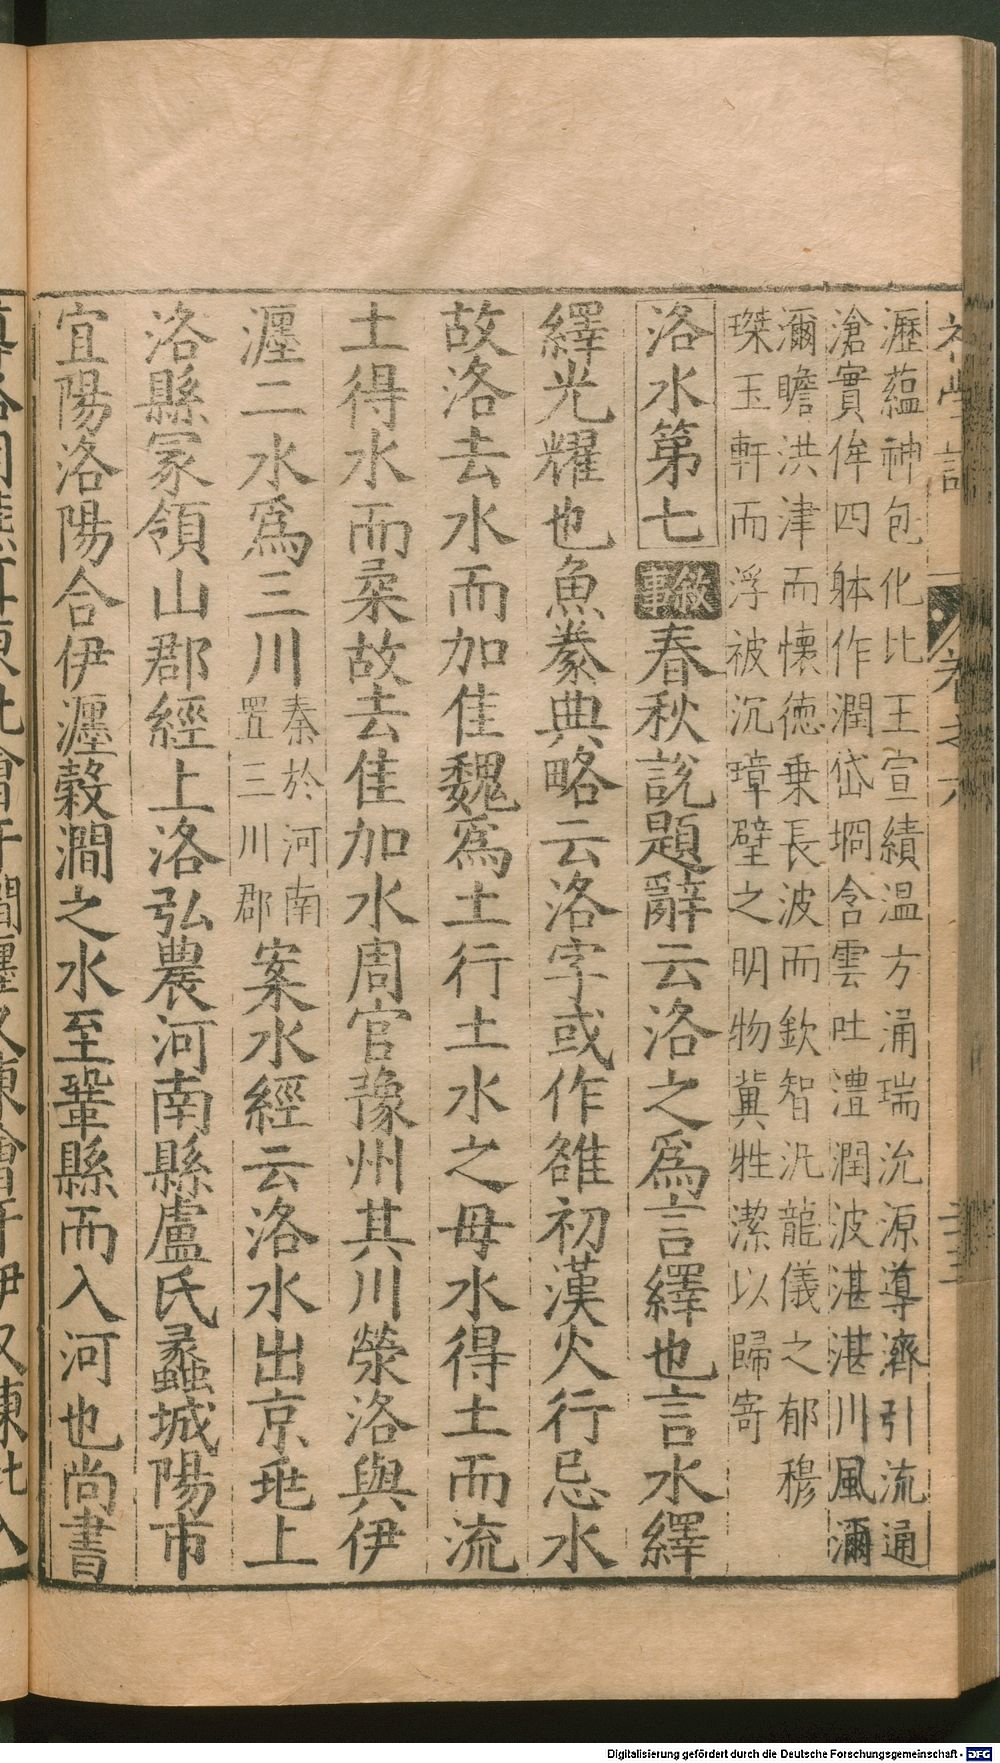 瀝蘊神包化比王宣績温方涌瑞沇源導濟引流通
滄實侔四躰作潤岱埛含雲吐澧潤波湛湛川風瀰
瀰瞻洪津而懷德乗長波而欽智汎龍儀之郁穆
琹玉軒而浮被沉璋壁之明物冀牲潔以歸寄
洛水第七 敘事 春秋説題辭云洛之爲言繹也言水繹
繹光耀也魚豢典略云洛字或作雒初漢火行忌水
故洛去水而加隹魏爲土行土水之母水得土而流
土得水而柔故去隹加水周官豫州其川滎洛與伊
瀍二水爲三川秦於河南置三川郡案水經云洛水出京兆上
洛縣冢領山郡經上洛弘農河南縣盧氏蠡城陽市
宜陽洛陽合伊瀍榖澗之水至鞏縣而入河也尚書
Digitalisierung gefördert durch die Deutsche Forschungsgemeinschaft - DFG